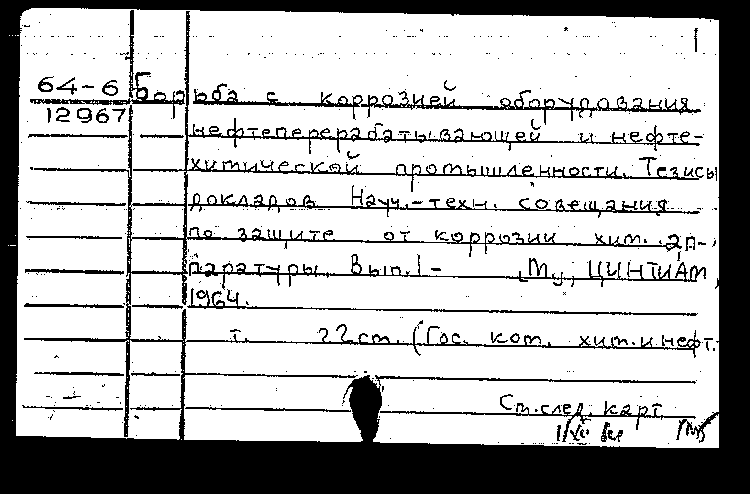 64-6 Борьба с коррозией оборудования
12967 нефтеперерабатывающей и нефте-
химической промышленности. Тезисы
докладов Науч.-техн. совещания
по защите от коррозии хим. ап-
паратуры. Вып. 1- [М], ЦИНТИАМ,
1964.
т. 22 ст. (Гос. ком. хим. и нефт.
См. след. карт.